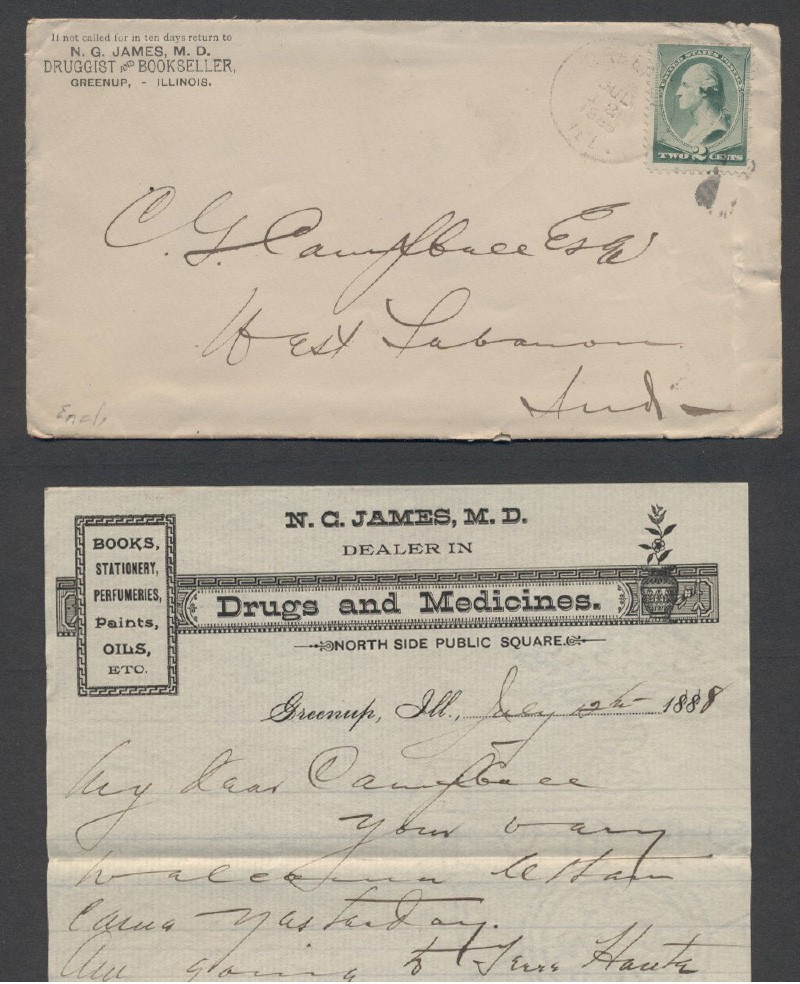 If not called for in ten days return to
N. G. JAMES, M. D.
DRUGGIST AND BOOKSELLER,
GREENUP, - ILLINOIS.
JUL
12
1888
ILL.
UNITED STATES POSTAGE
TWO 2 CENTS
C. G. Campbell Esq
West Lebanon
Ind
Encl.
N. G. JAMES, M. D.
DEALER IN
Drugs and Medicines.
NORTH SIDE PUBLIC SQUARE.
BOOKS,
STATIONERY,
PERFUMERIES,
Paints,
OILS,
ETC.
Greenup, Ill., July 12th 1888
My Dear Campbell
Your very
welcome letter
came yesterday.
Am going to Terre Haute